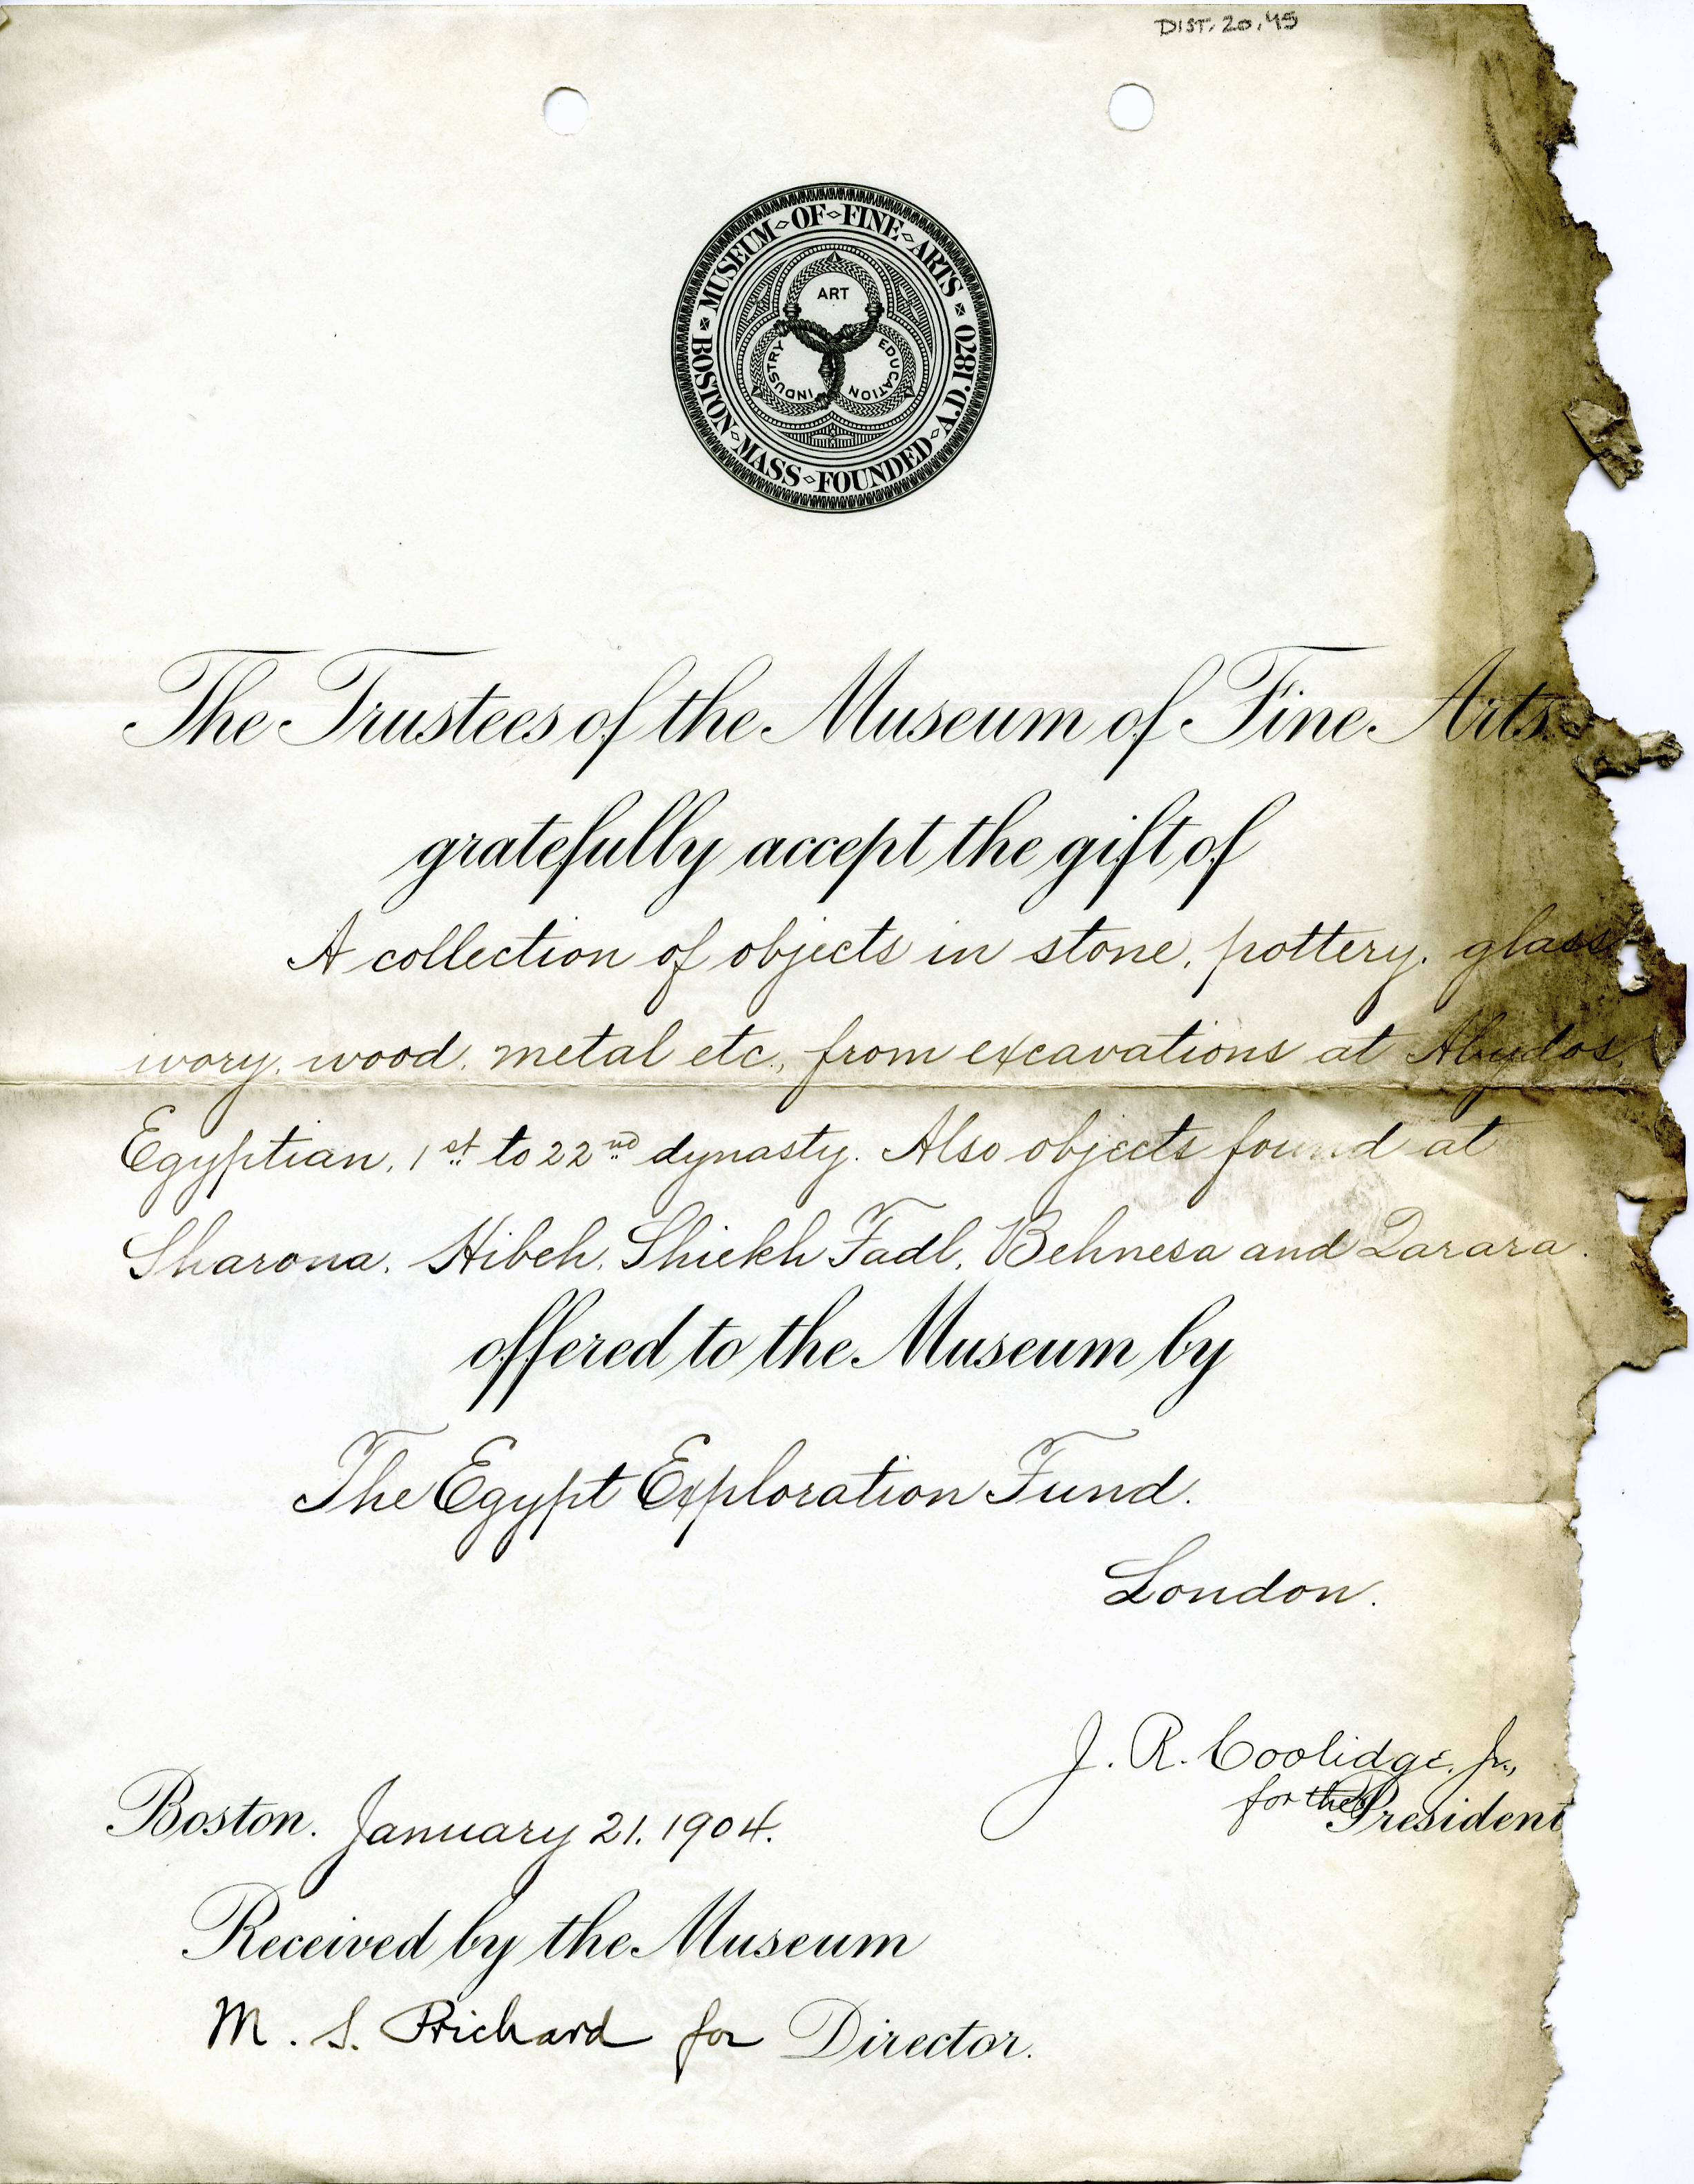 DIST. 20.45
BOSTON · MUSEUM OF FINE ARTS · MASS FOUNDED A.D. 1870
ART
INDUSTRY
EDUCATION
The Trustees of the Museum of Fine Arts
gratefully accept the gift of
A collection of objects in stone, pottery, glass
ivory, wood, metal etc., from excavations at Abydos,
Egyptian, 1st to 22nd dynasty. Also objects found at
Sharona, Hibeh, Shiekh Fadl, Behnesa and Qarara.
offered to the Museum by
The Egypt Exploration Fund.
London.
J. R. Coolidge, Jr.,
for the President
Boston. January 21. 1904.
Received by the Museum
M. S. Prichard for Director.